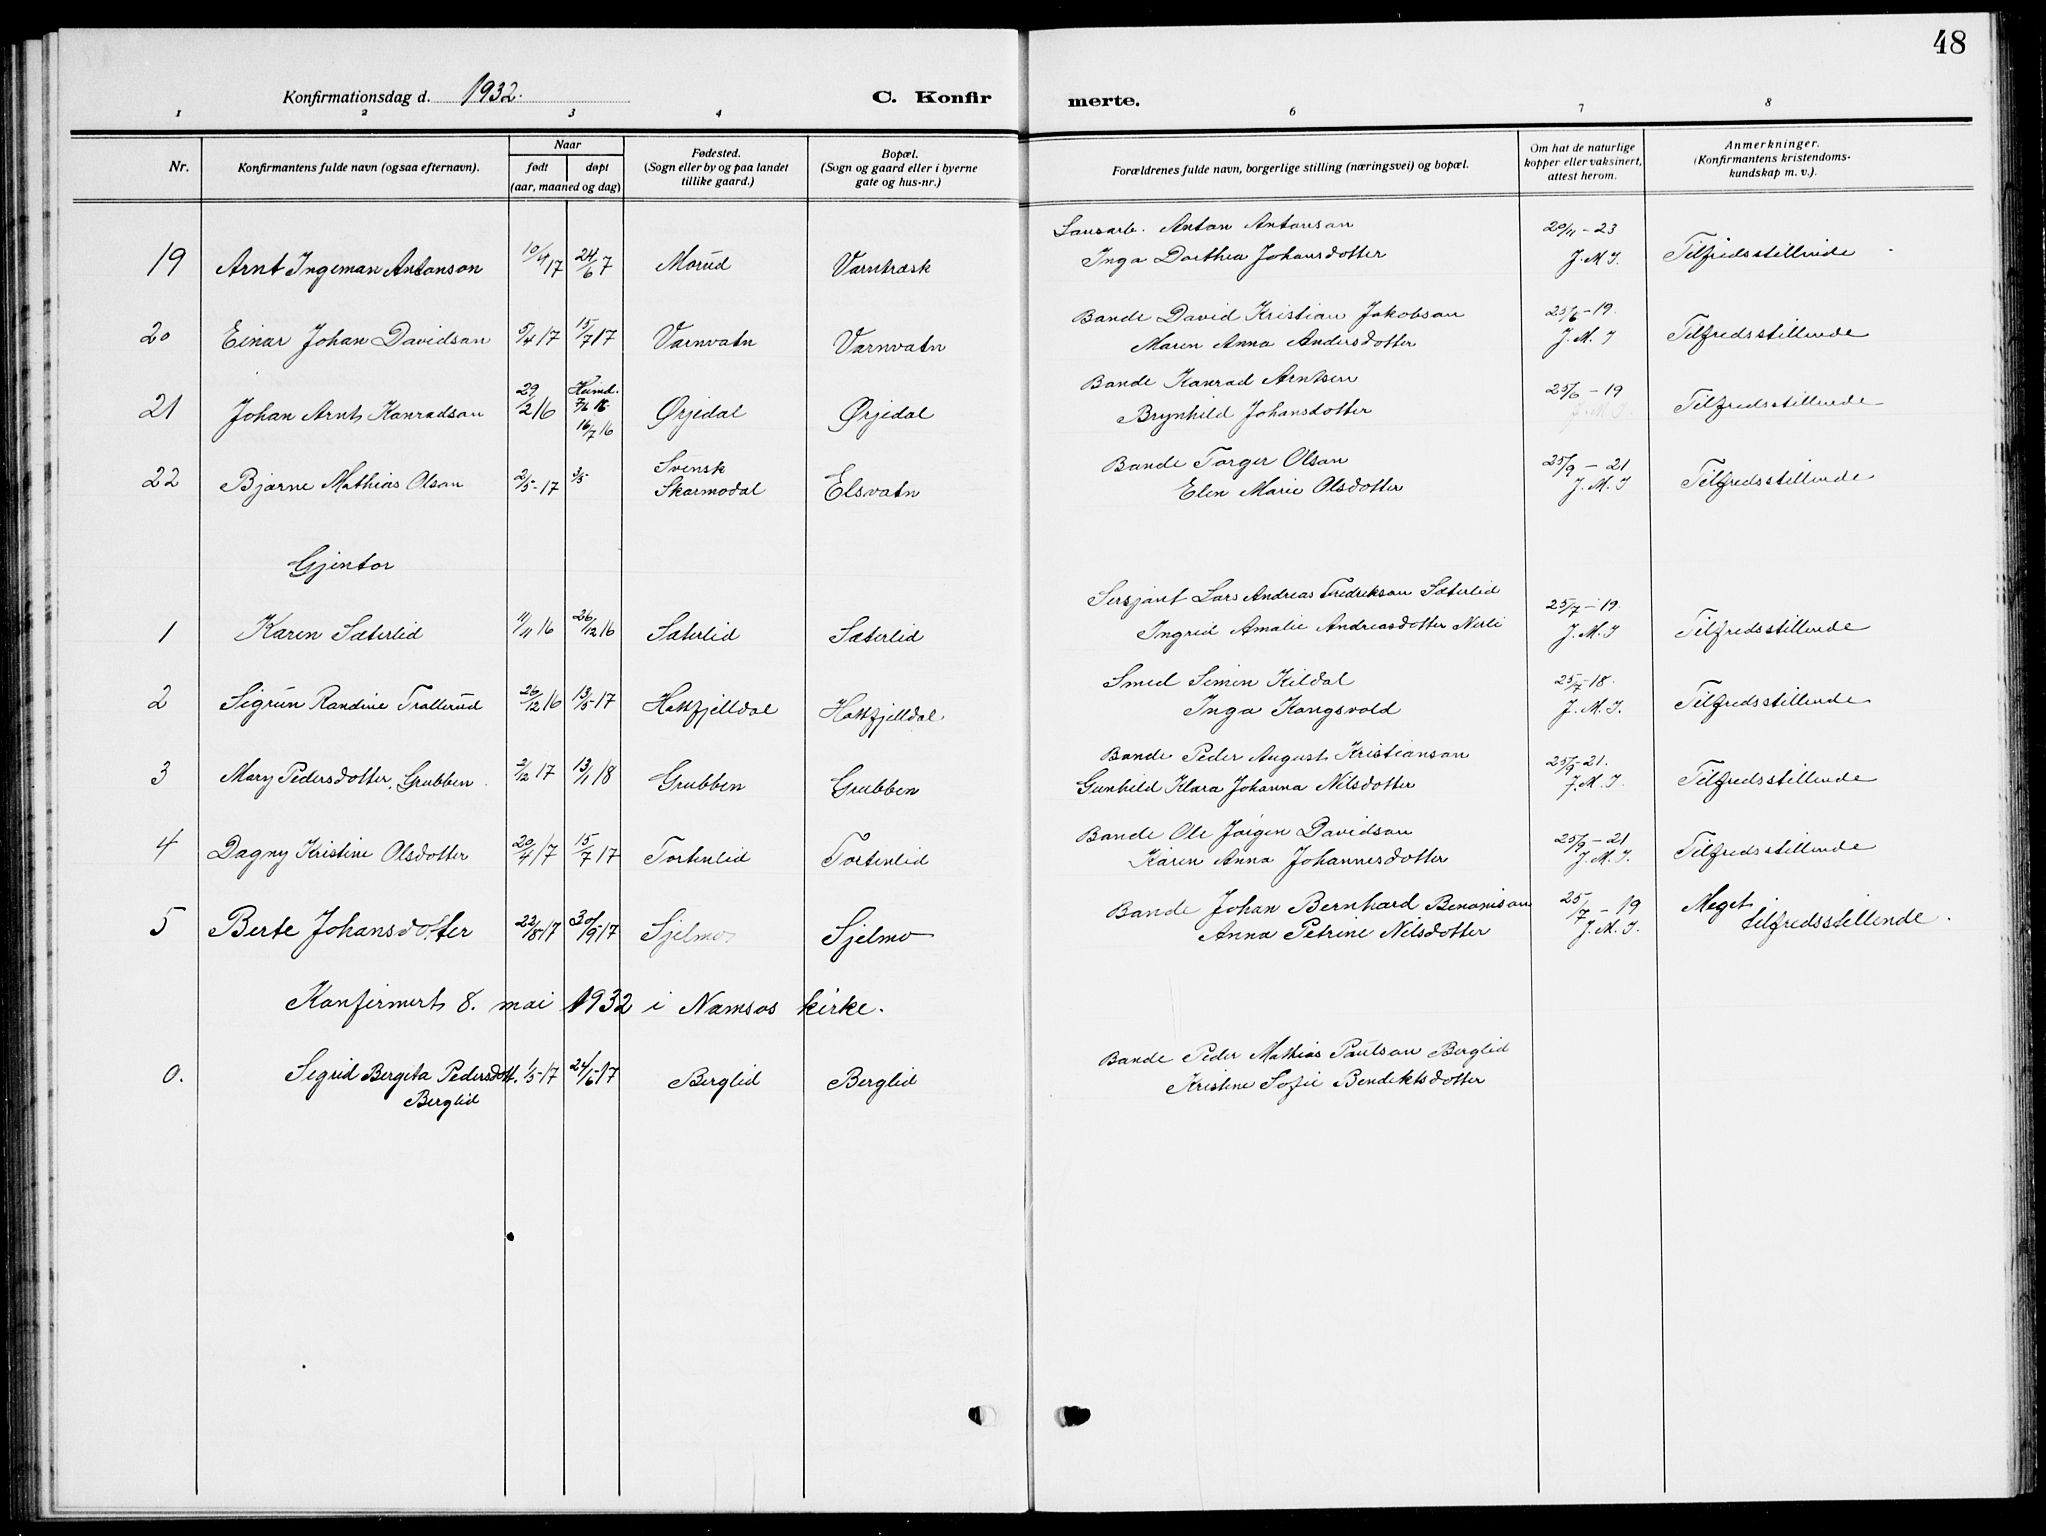 48
Konfirmationsdag d. 1932.
C. Konfirmerte.
1 2 3 4 6 7 8
Nr.
Konfirmantens fulde navn (ogsaa efternavn).
Naar
født
døpt
(aar, maaned og dag)
Fødested.
(Sogn eller by og paa landet
tillike gaard.)
Bopæl.
(Sogn og gaard eller i byerne
gate og hus-nr.)
Forældrenes fulde navn, borgerlige stilling (næringsvei) og bopæl.
Om hat de naturlige
kopper eller vaksinert,
attest herom.
Anmerkninger.
(Konfirmantens kristendoms-
kundskap m. v.).
Lausarb. Anton Antonson 20/11 - 23
19 Arnt Ingeman Antonson 10/4 17 24/6 7 Morud Varntræsk Inga Dorthea Johansdotter J. M. I. Tilfredsstillende
Bonde David Kristian Jakobson 25/6 - 19.
20 Einar Johan Davidson 5/4 17 15/7 17 Varnvatn Varnvatn Maren Anna Andersdotter J. M. I Tilfredsstillende
Bonde Konrad Arntsen 25/6 - 19
21 Johan Arnt Konradson 29/2 16 Heimd. 7/6 16 16/7 16 Ørjedal Ørjedal Brynhild Johansdotter J. M. I. Tilfredsstillende
Svensk Bonde Torger Olson 25/9 - 21
22 Bjarne Mathias Olson 2/5 - 17 3/5 Skarmodal Elsvatn Elen Marie Olsdotter J. M. I Tilfredsstillende
Gjentor
Sersjant Lars Andreas Fredrikson Sæterlid 25/7 - 19.
1 Karen Sæterlid 11/11 16 26/12 16 Sæterlid Sæterlid Ingrid Amalie Andreasdotter Nerli J. M. I Tilfredsstillende
Smed Simen Kildal 25/7 - 18.
2 Sigrun Randine Trallerud 26/12 16 13/5 - 17 Hattfjelldal Hattfjelldal Inga Kongsvold J. M. I. Tilfredsstillende
Bonde Peder August Kristianson 25/9 - 21.
3 Mary Pedersdotter, Grubben 2/12 17 13/1 18 Grubben Grubben Gunhild Klara Johanna Nilsdotter J. M. I. Tilfredsstillende
Bonde Ole Jørgen Davidson 25/9 - 21
4 Dagny Kristine Olsdotter 20/4 17 15/7 17 Tortenlid Tortenlid Karen Anna Johannesdotter J. M. I. Tilfredsstillende
Bonde Johan Bernhard Benonison 25/7 - 19 Meget
5 Berte Johansdotter 22/8 17 30/9 17 Sjelmo Sjelmo Anna Petrine Nilsdotter J. M. I. tilfredsstillende.
Konfirmert 8. mai 1932 i Namsos kirke.
Bonde Peder Mathias Paulson Berglid
0. Sigrid Bergita Pedersdott. 1/5 - 17 24/6 - 17 Berglid Berglid Kristine Sofie Bendiktsdotter
Berglid